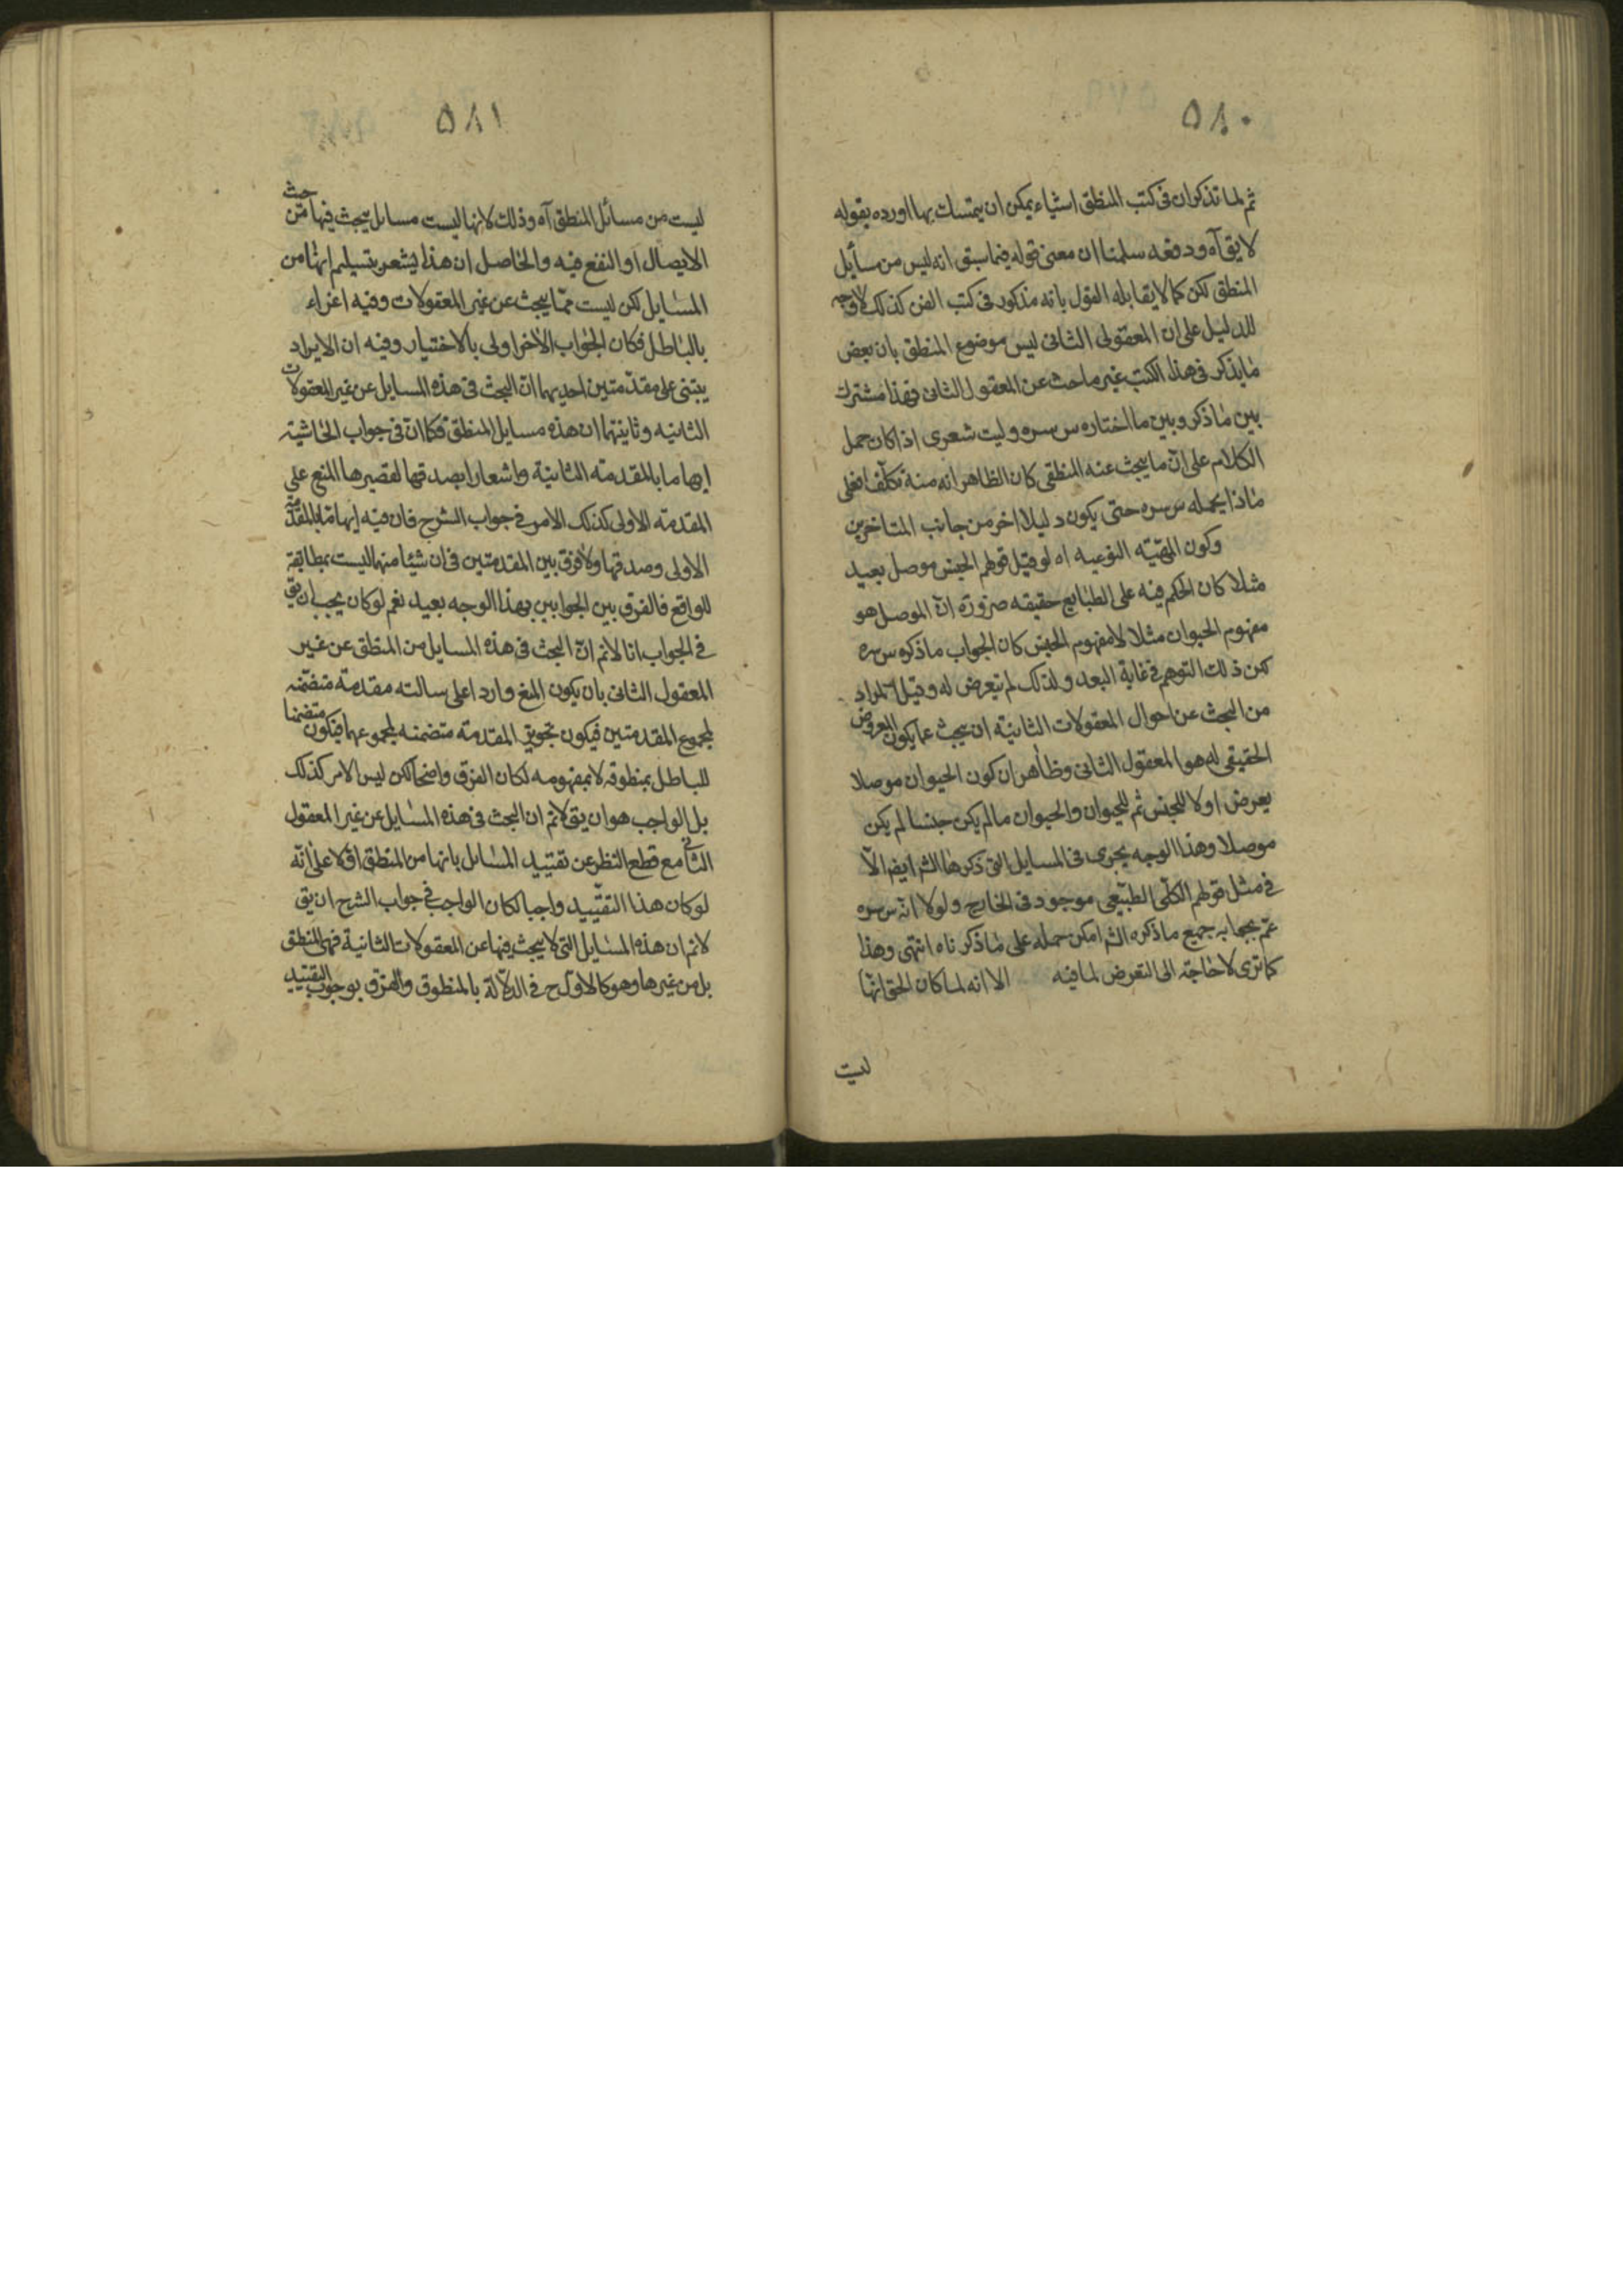 ٥٨٠
ثم لما تذكر ان فى كتب المنطق اشياء يمكن ان يتمسك بها اورده بقوله
لا يق آه ودفعه سلمنا ان معنى قوله فيما سبق انه ليس من مسأيل
المنطق لكن كما لا يقابله القول بانه مذكور فى كتب الفن كذلك لا وجه
للدليل على ان المعقولى الثانى ليس موضوع المنطق بان بعض
مايذكر فى هذا الكتب غير ماحث عن المعقول الثانى فهذا مشترك
بين ماذكر وبين ما اختاره س سره وليت شعرى اذا كان حمل
الكلام على ان ما يبحث عنه المنطقى كان الظاهر انه منه تكلفا فعلى
ماذا يحمله س سره حتى يكون دليلا اخر من جانب المتاخرين
وكون المهيّته النوعيه اه لو قيل قولهم الجنس موصل بعيد
مثلا كان الحكم فيه على الطبايع حقيقه ضرورة ان الموصل هو
مفهوم الحيوان مثلا لا مفهوم الجنس كان الجواب ما ذكره س سره
لكن ذلك التوهم فى غاية البعد ولذلك لم يتعرض له وقيل المراد
من البحث عن احوال المعقولات الثانيّه ان يبحث عما يكون المعروض
الحقيقى له هو المعقول الثانى وظاهر ان كون الحيوان موصلا
يعرض اولا للجنس ثم للحيوان والحيوان مالم يكن جنسا لم يكن
موصلا وهذا الوجه يجرى فى المسايل التى ذكرها الشر ايضا الّا
فى مثل قولهم الكلّى الطبّيعى موجود فى الخارج ولولا انّه س سره
عمّ بجوابه جميع ماذكره الشر امكن حمله على ماذكرناه انتهى وهذا
كما ترى لاحاجة الى التعرض لما فيه الا انه لما كان الحق انّها
ليت
٥٨١
ليست من مسائل المنطق آه وذلك لانها ليست مسايل يبحث فيها من حيث
الايصال او النفع فيه والحاصل ان هذا يشعر بتسليم انها من
المسايل لكن ليست ممّا يبحث عن غير المعقولات وفيه اغراء
بالباطل فكان الجواب الاخر اولى بالاختيار وفيه ان الايراد
يبتنى على مقدمتين احديهما ان البحث فى هذه المسايل عن غير المعقولات
الثانيه وثاينتهما ان هذه مسايل المنطق فكما ان فى جواب الحاشية
إيهاما بالمقدمته الثانية واشعارا بصدقها لقصيرها المنع على
المقدمته الاولى كذلك الامر فى جواب الشرح فان فيه إيهاما بالمقدمة
الاولى وصدقها ولا فرق بين المقدمتين فى ان شيئا منهما ليست بمطابقة
للواقع فالفرق بين الجوابين بهذا الوجه بعيد نعم لو كان يجب ان يق
فى الجواب انا لانم ان البحث فى هذه المسايل من المنطق عن غير
المعقول الثانى بان يكون المنع واردا على سالته مقدمة متضمّنه
لمجموع المقدمتين فيكون تجويز المقدمة متضمنه لمجموعهما فيكون متضمنا
للباطل بمنطوقه لا بمفهومه لكان الفرق واضحا لكن ليس الامر كذلك
بل الواجب هو ان يق لانم ان البحث فى هذه المسايل عن غير المعقول
الثانى مع قطع النظر عن تقييد المسائل بانها من المنطق اولا على انّه
لو كان هذا التقييد واجبا لكان الواجب فى جواب الشرح ان يق
لانم ان هذه المسايل التى لا يبحث فيها عن المعقولات الثانية فهى المنطق
بل من غيرها وهو كالاول ح فى الدلالة بالمنطوق والفرق بوجوب التقييد